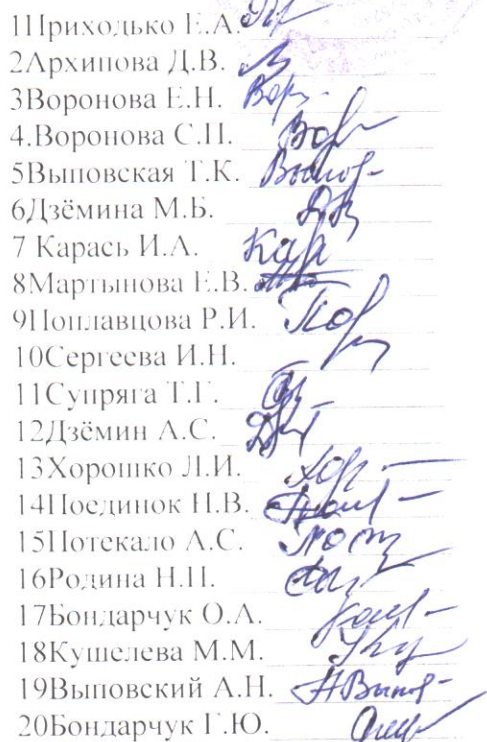 1Приходько Е.А.
2Архипова Д.В.
3Воронова Е.Н. Вор
4.Воронова С.П. Вор
5Выповская Т.К.
6Дзёмина М.Б.
7 Карась И.А. Кар
8Мартынова Е.В.
9Поплавцова Р.И.
10Сергеева И.Н.
11Супряга Т.Г.
12Дзёмин А.С.
13Хорошко Л.И.
14Поединок Н.В.
15Потекало А.С.
16Родина Н.П.
17Бондарчук О.А.
18Кушелева М.М.
19Выповский А.Н.
20Бондарчук Г.Ю.